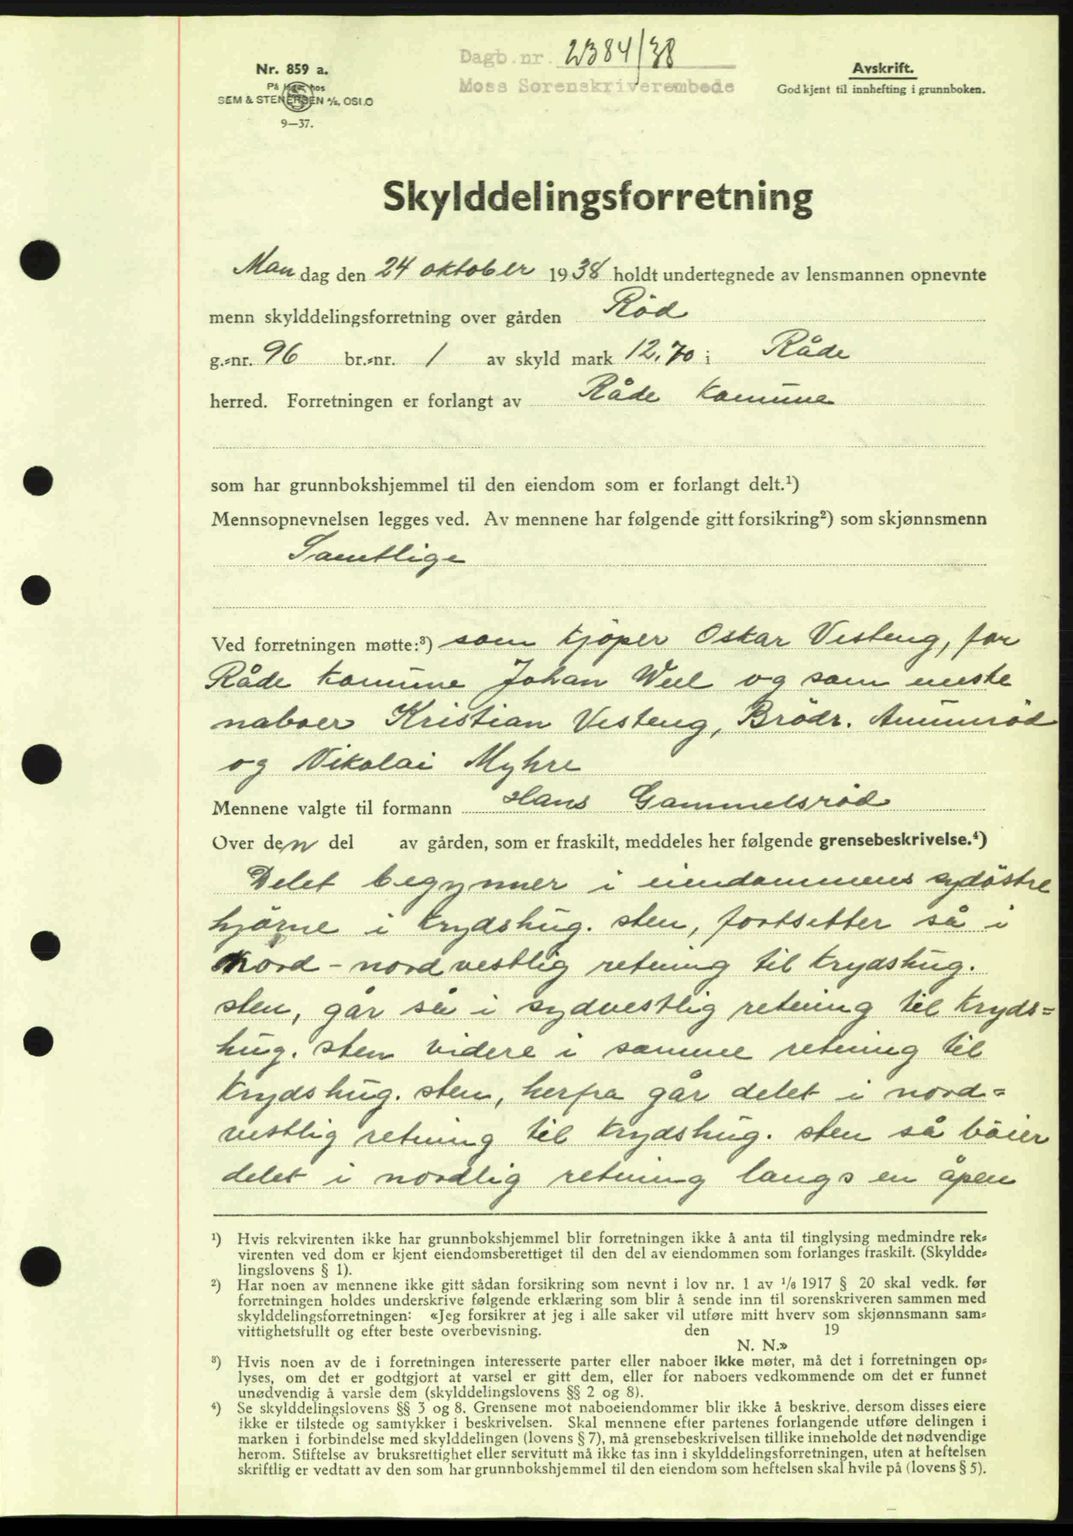 Nr. 859 a.
På lager hos
SEM & STENERSEN A/S, OSLO
9—37.
Dagb. nr. 2384/38
Moss Sorenskriverembede
Avskrift.
Godkjent til innhefting i grunnboken.
Skylddelingsforretning
Man dag den 24 oktober 1938 holdt undertegnede av lensmannen opnevnte
menn skylddelingsforretning over gården Röd
g.-nr. 96 br.-nr. 1 av skyld mark 12,70 i Råde
herred. Forretningen er forlangt av Råde komune
som har grunnbokshjemmel til den eiendom som er forlangt delt.¹)
Mennsopnevnelsen legges ved. Av mennene har følgende gitt forsikring²) som skjønnsmenn
Samtlige
Ved forretningen møtte:³) som kjöper Oskar Vesteng, for
Råde komune Johan Weel og som eneste
naboer Kristian Vesteng, Brödr. Amunröd
og Nikolai Myhre
Mennene valgte til formann Hans Gammelsröd
Over den del av gården, som er fraskilt, meddeles her følgende grensebeskrivelse.⁴)
Delet begynner i eiendommens sydöstre
hjörne i krydshug. sten, fortsetter så i
nord-nordvestlig retning til krydshug.
sten, går så i sydvestlig retning til kryds=
hug. sten videre i samme retning til
krydshug. sten, herfra går delet i nord=
vestlig retning til krydshug. sten så böier
delet i nordlig retning langs en åpen
¹) Hvis rekvirenten ikke har grunnbokshjemmel blir forretningen ikke å anta til tinglysing medmindre rek-
virenten ved dom er kjent eiendomsberettiget til den del av eiendommen som forlanges fraskilt. (Skyldde-
lingslovens § 1).
²) Har noen av mennene ikke gitt sådan forsikring som nevnt i lov nr. 1 av ¹/₆ 1917 § 20 skal vedk. før
forretningen holdes underskrive følgende erklæring som blir å sende inn til sorenskriveren sammen med
skylddelingsforretningen: «Jeg forsikrer at jeg i alle saker vil utføre mitt hverv som skjønnsmann sam-
vittighetsfullt og efter beste overbevisning. den 19
N. N.»
³) Hvis noen av de i forretningen interesserte parter eller naboer ikke møter, må det i forretningen op-
lyses, om det er godtgjort at varsel er gitt dem, eller for naboers vedkommende om det er funnet
unødvendig å varsle dem (skylddelingslovens §§ 2 og 8).
⁴) Se skylddelingslovens §§ 3 og 8. Grensene mot naboeiendommer blir ikke å beskrive, dersom disses eiere
ikke er tilstede og samtykker i beskrivelsen. Skal mennene efter partenes forlangende utføre delingen i
marken i forbindelse med skylddelingen (lovens § 7), må grensebeskrivelsen tillike inneholde det nødvendige
herom. Stiftelse av bruksrettighet eller servitutt må ikke tas inn i skylddelingsforretningen, uten at heftelsen
skriftlig er vedtatt av den som har grunnbokshjemmel til den eiendom som heftelsen skal hvile på (lovens § 5).